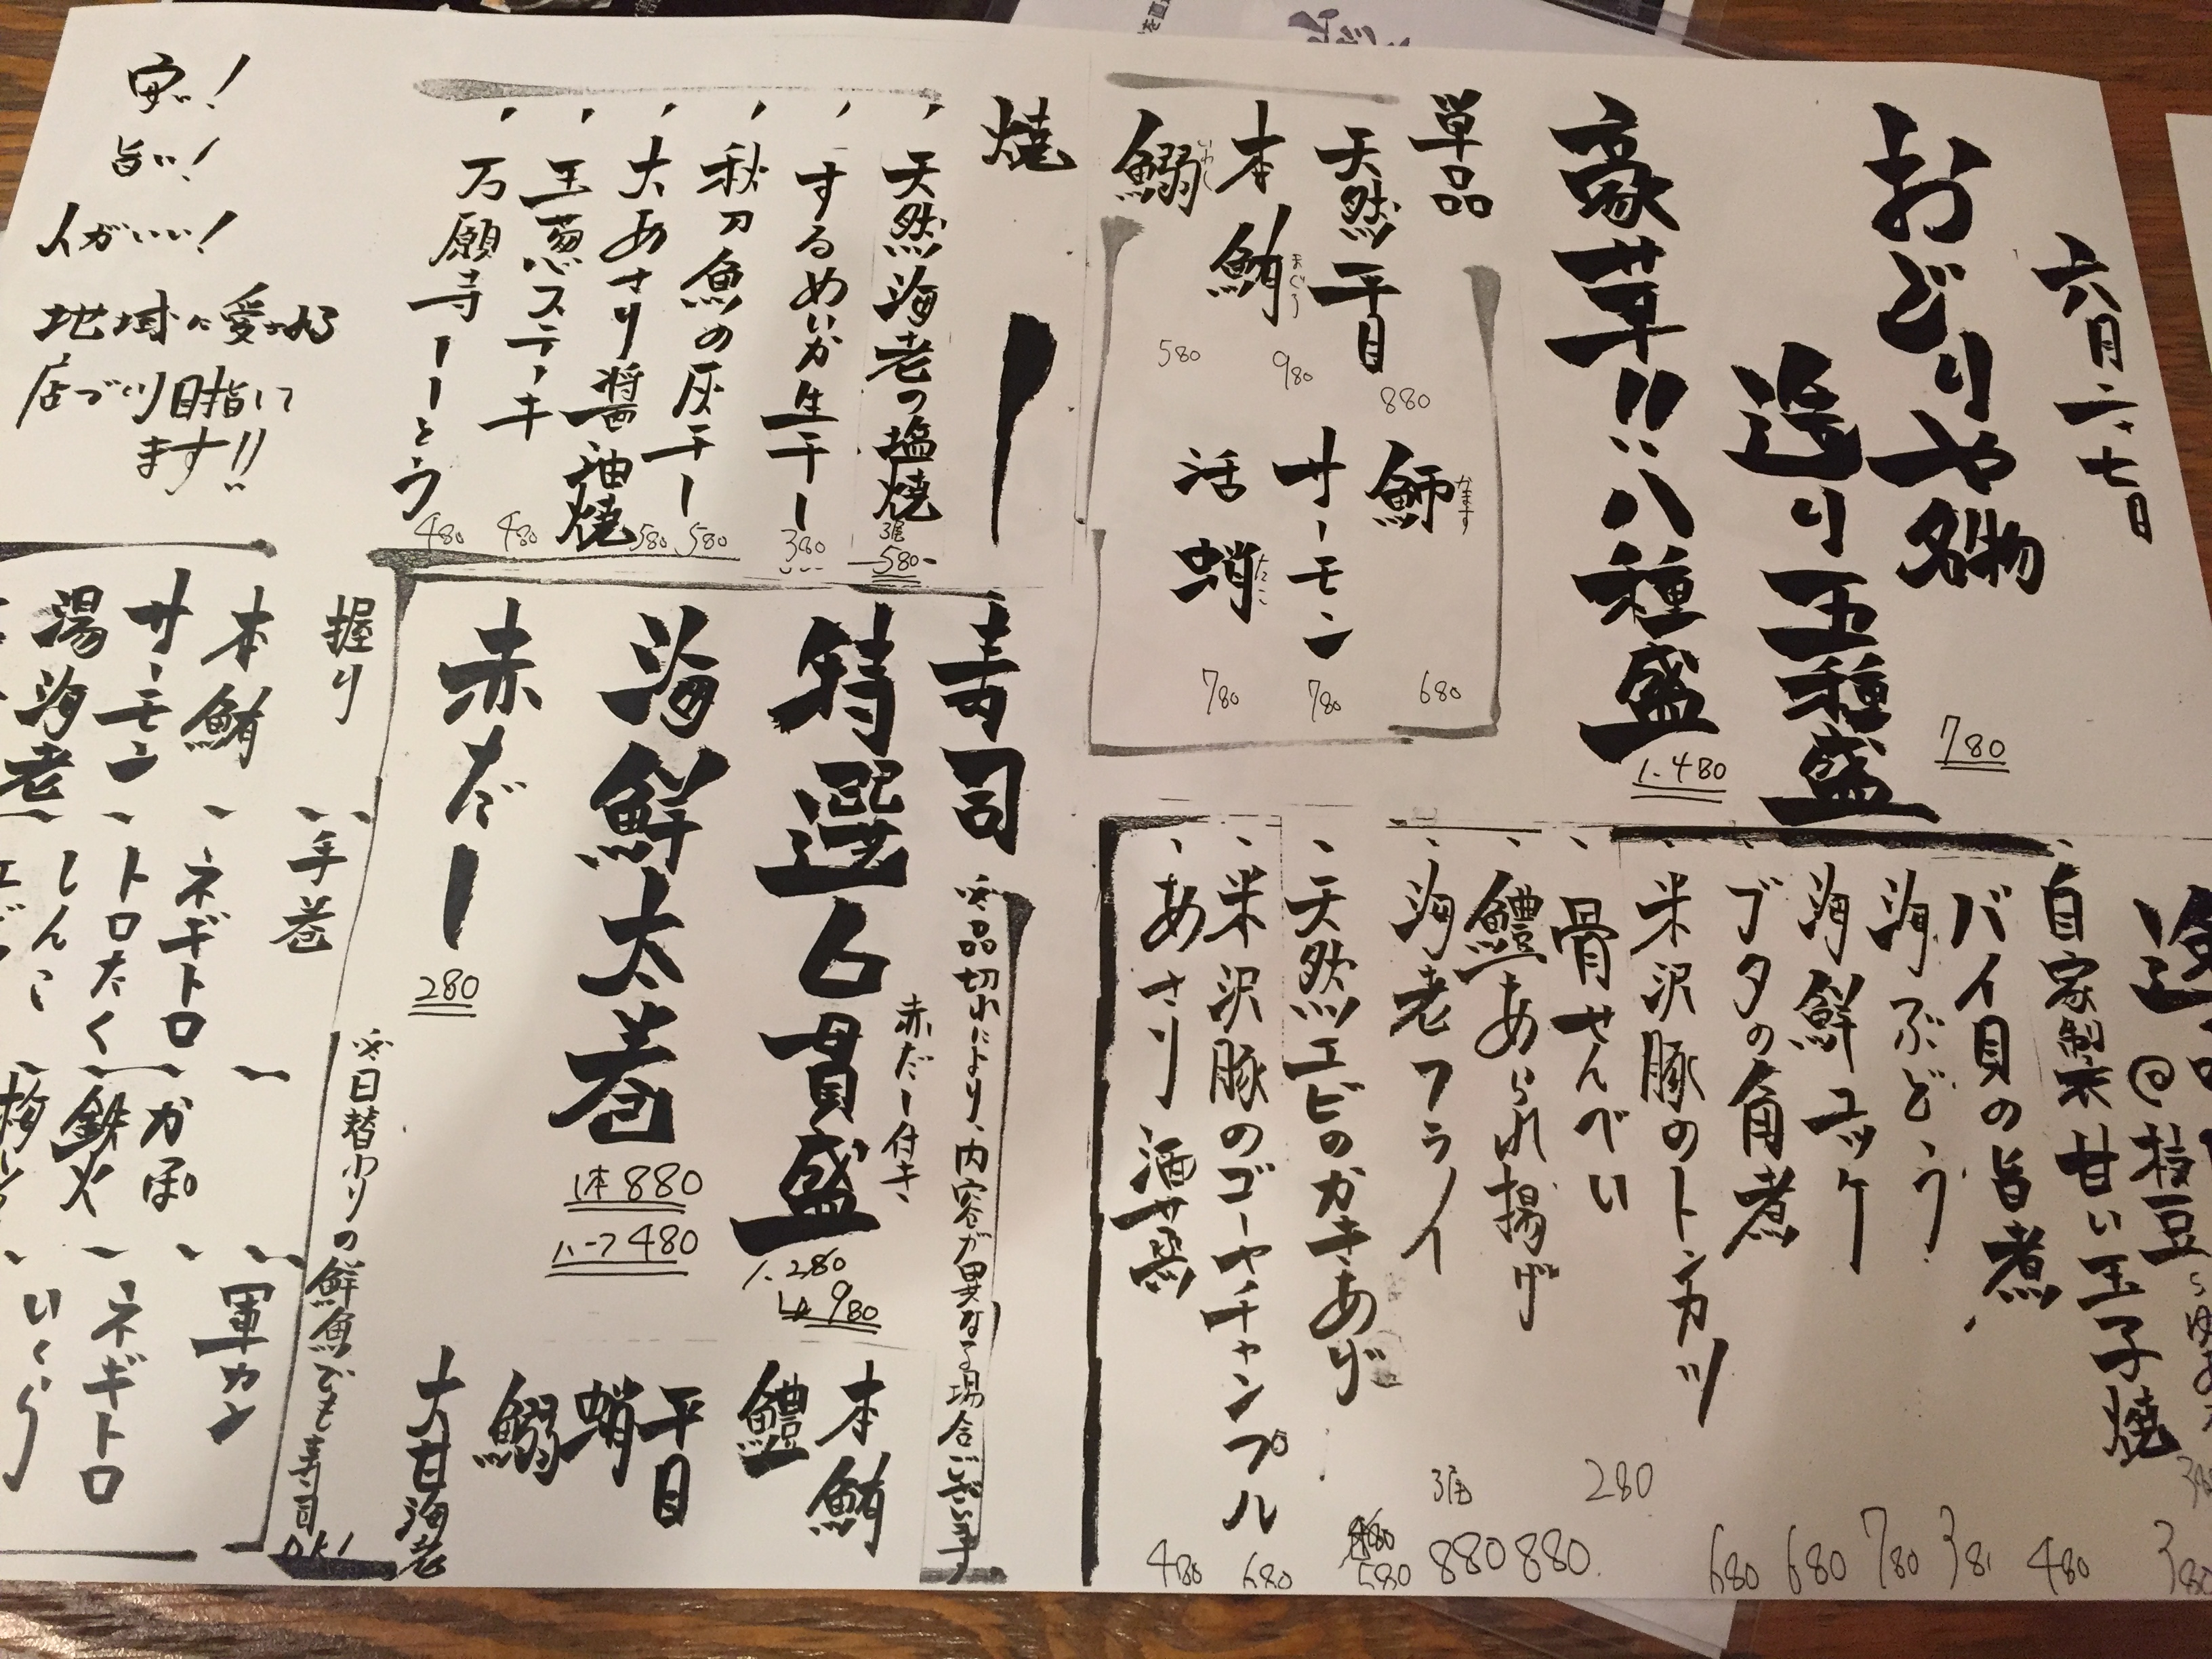 六月二十七日
おどりや名物
造り五種盛
780
豪華!!八種盛
1.480
単品
天然平目
880
本鮪
まぐろ
980
鰯
いわし
580
かます
680
サーモン
780
活蛸
たこ
780
焼
天然海老の塩焼
3尾
580-
するめいか生干し
380
秋刀魚の灰干し
580
大あさり醤油焼
580
玉葱ステーキ
480
万願寺ししとう
480
安い!
旨い!
人がいい!
地域に愛される
店づくり目指して
ます!!
枝豆
380
自家製甘い玉子焼
480
バイ貝の旨煮
380
海ぶどう
780
海鮮ユッケ
680
ブタの角煮
680
米沢豚のトンカツ
骨せんべい
280
鱧あられ揚げ
880
海老フライ
3尾
880
天然エビのかきあげ
580
米沢豚のゴーヤチャンプル
680
あさり酒蒸
480
寿司
※品切れにより、内容が異なる場合ございます
特選6貫盛
赤だし付き
1.280
980
海鮮太巻
1本880
ハーフ480
赤だし
280
本鮪
鱧
平目
蛸
鰯
大甘海老
※日替わりの鮮魚でも寿司OK!
握り
本鮪
サーモン
湯海老
手巻
ネギトロ
トロたく
しんこ
かっぱ
鉄火
軍カン
ネギトロ
いくら